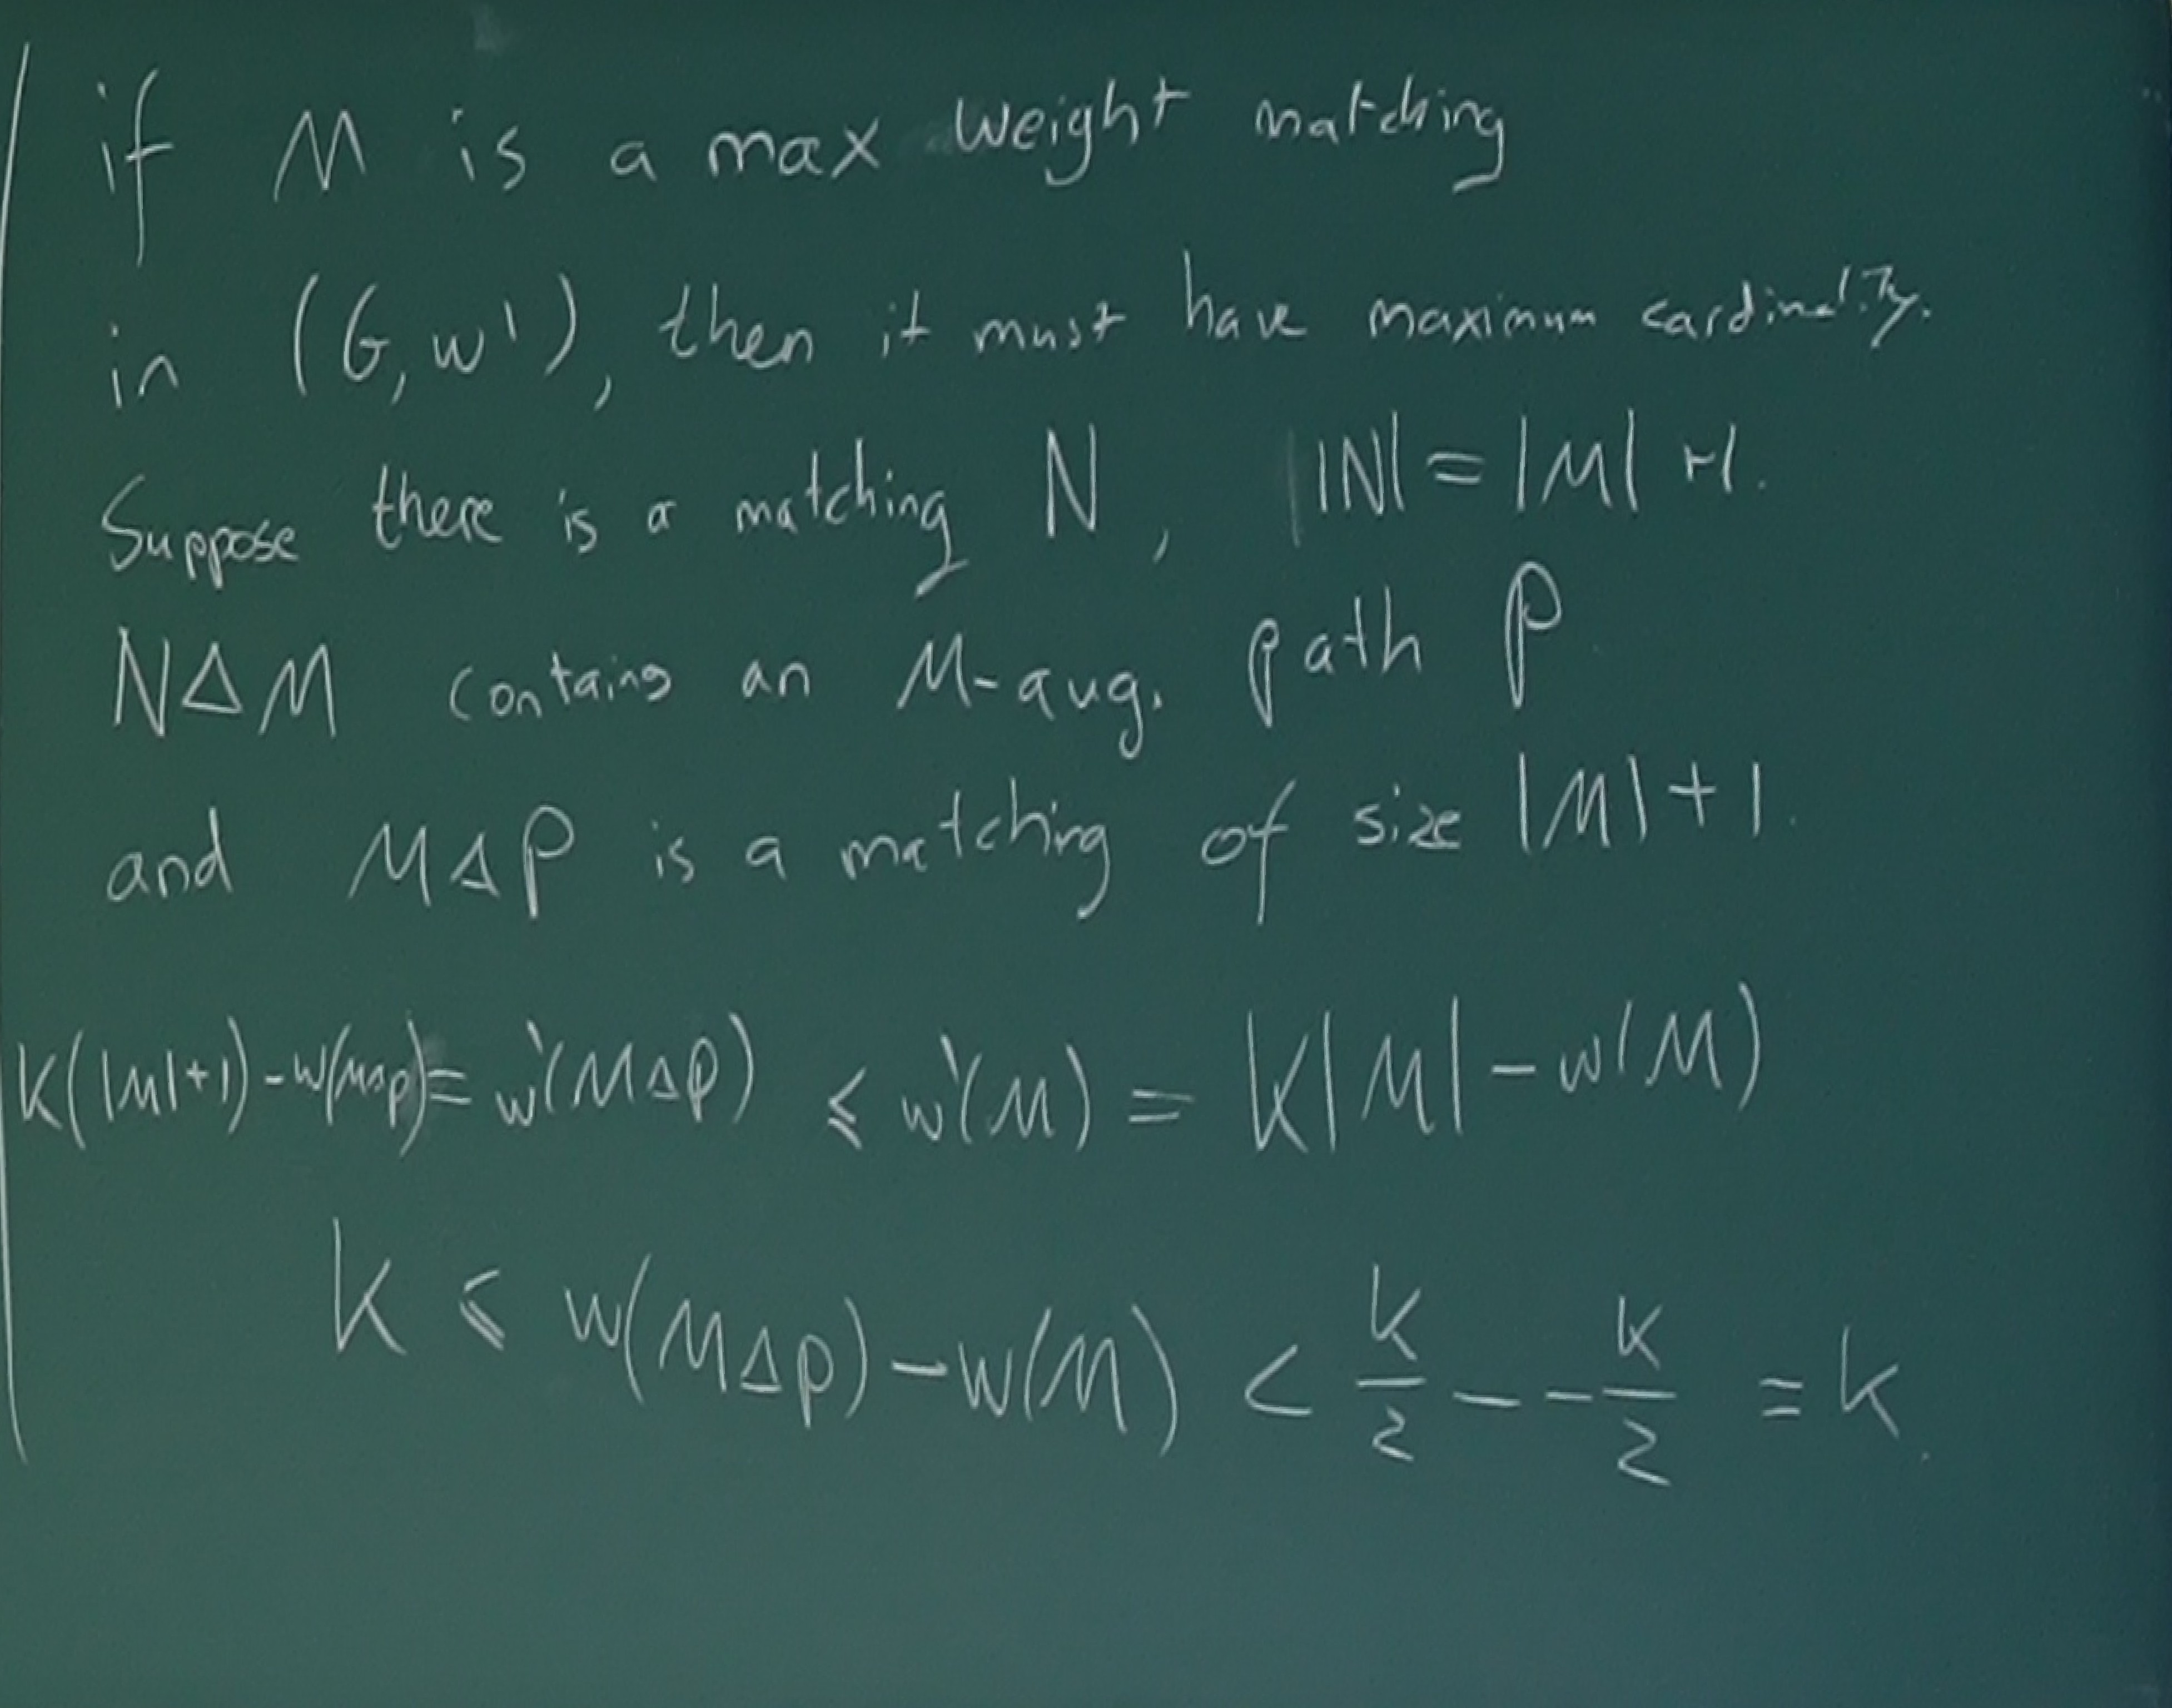 if M is a max weight matching
in (G, w'), then it must have maximum cardinality.
Suppose there is a matching N, |N| = |M| + 1.
N Δ M contains an M-aug. path P
and M Δ P is a matching of size |M| + 1.
K(|M|+1) - w(MΔP) = w'(MΔP) ≤ w'(M) = K|M| - w(M)
K ≤ w(MΔP) - w(M) < K/2 - -K/2 = K.